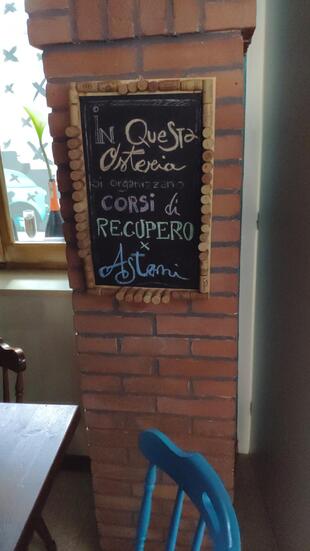 In Questa
Osteria
si organizzano
CORSI di
RECUPERO
x
Astemi